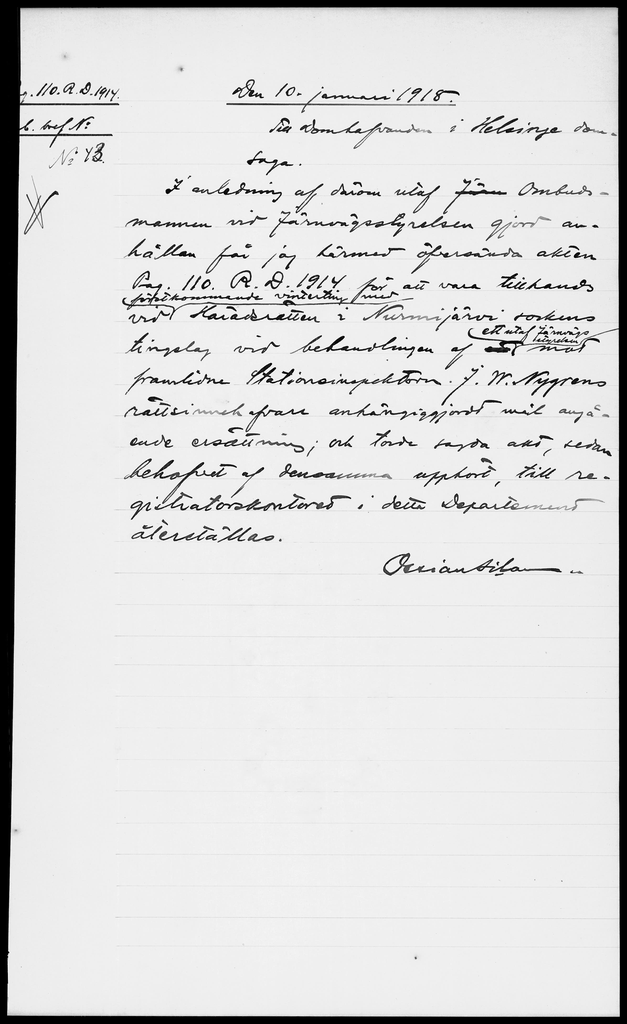 g. 110. R. D. 1914.
b. bref Nº
Nº 43.
Den 10. januari 1918.
Till Domhafvanden i Helsinge dom-
saga.
I anledning af därom utaf Järn Ombuds-
mannen vid Järnvägsstyrelsen gjord an-
hållan får jag härmed öfversända akten
Pag. 110. R. D. 1914 för att vara tillhands
förstkommande vinterting med
vid Häradsrätten i Nurmijärvi sockens
ett utaf Järnvägs
styrelsen
tingslag vid behandlingen af mot
framlidne Stationsinspektorn J. W. Nygrens
rättsinnehafvare anhängiggjordt mål angå-
ende ersättning; och torde sagda akt, sedan
behofvet af densamma upphört, till re-
gistratorskontoret i detta Departement
återställas.